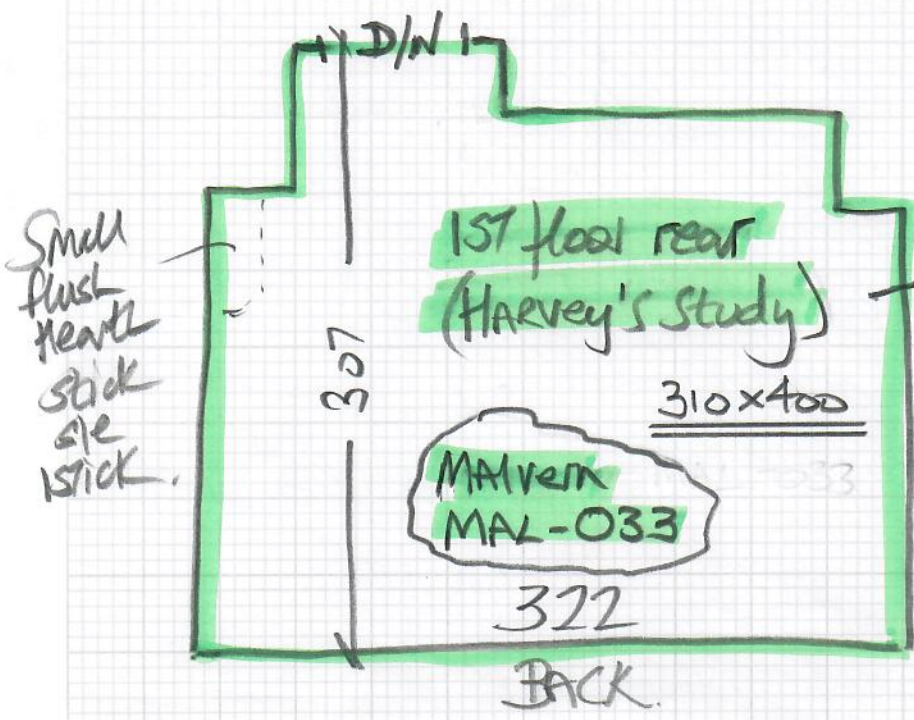 D/N
Small
flush
Hearth
stick
stick.
307
1ST floor rear
(HARVEY'S Study)
310x400
MAlvern
MAL-033
322
BACK.